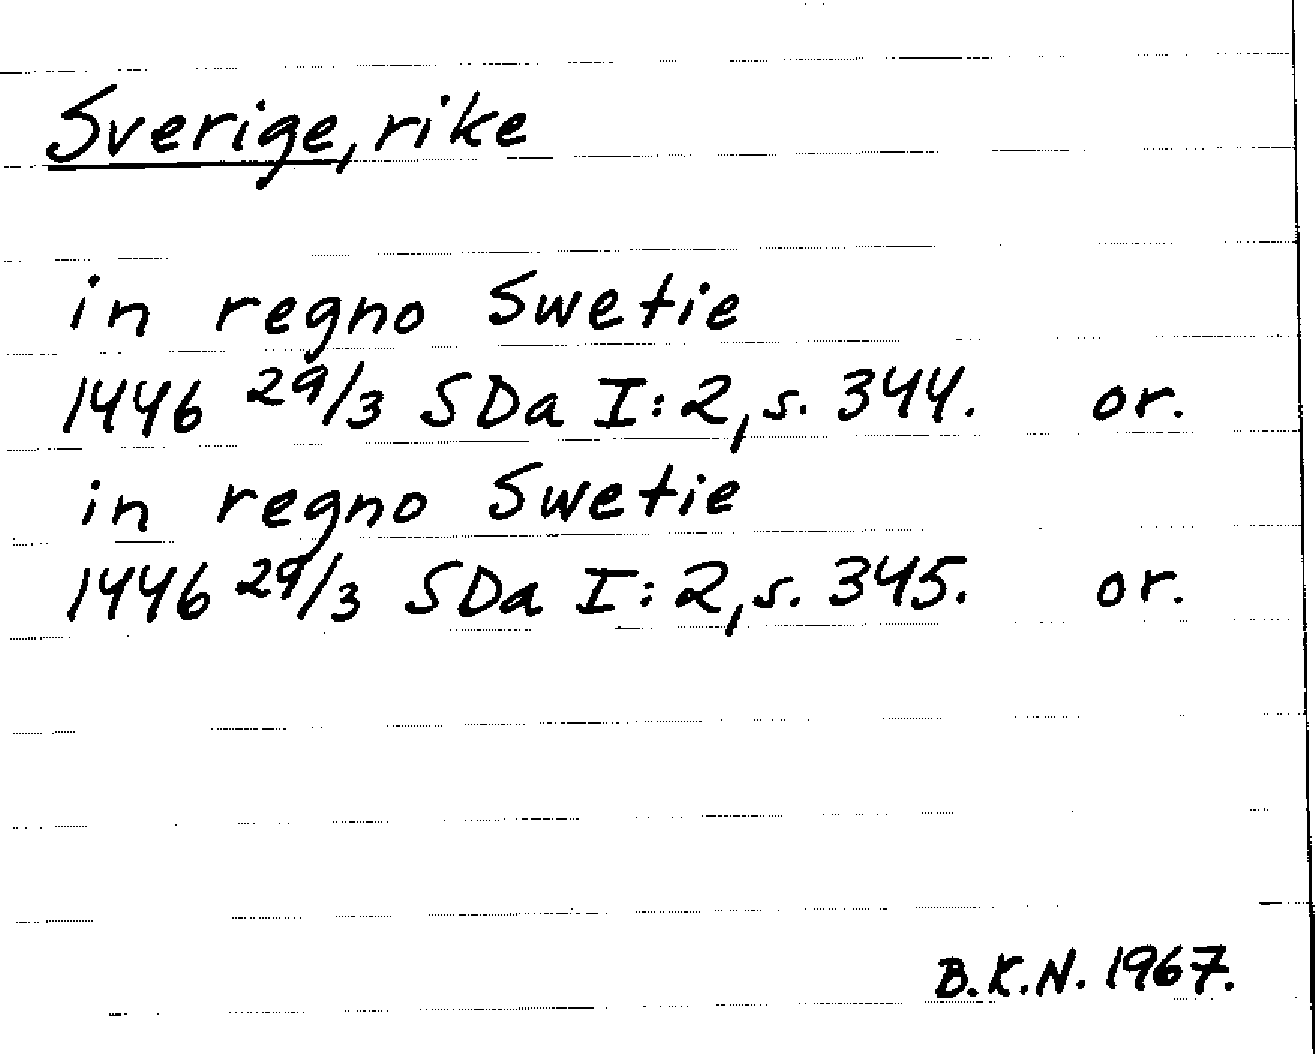 Sverige, rike
in regno Swetie
1446 29/3 SDa I:2, s. 344. or.
in regno Swetie
1446 29/3 SDa I:2, s. 345. or.
B.K.N. 1967.